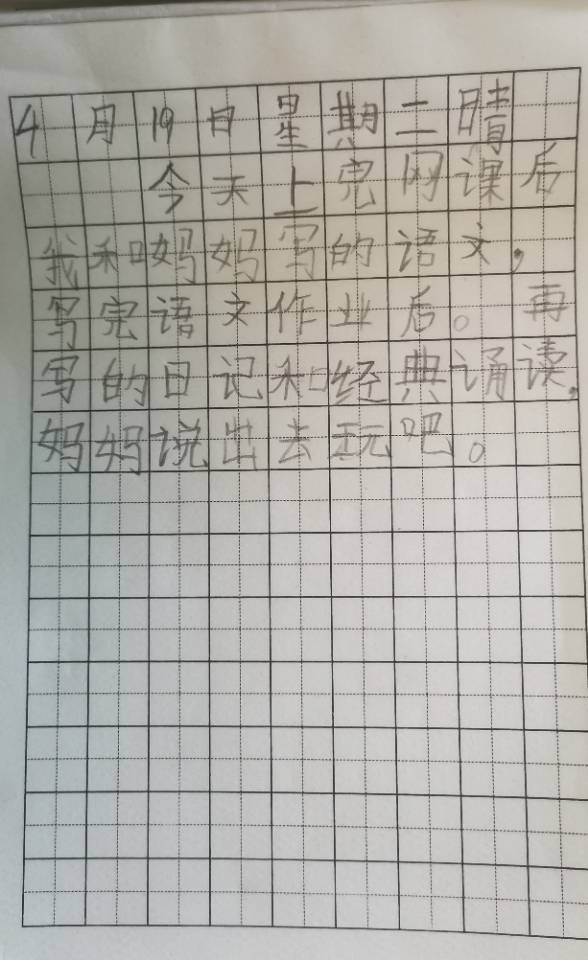 4月19日星期二晴
今天上完网课后
我和妈妈写的语文，
写完语文作业后。再
写的日记和经典诵读，
妈妈说出去玩吧。